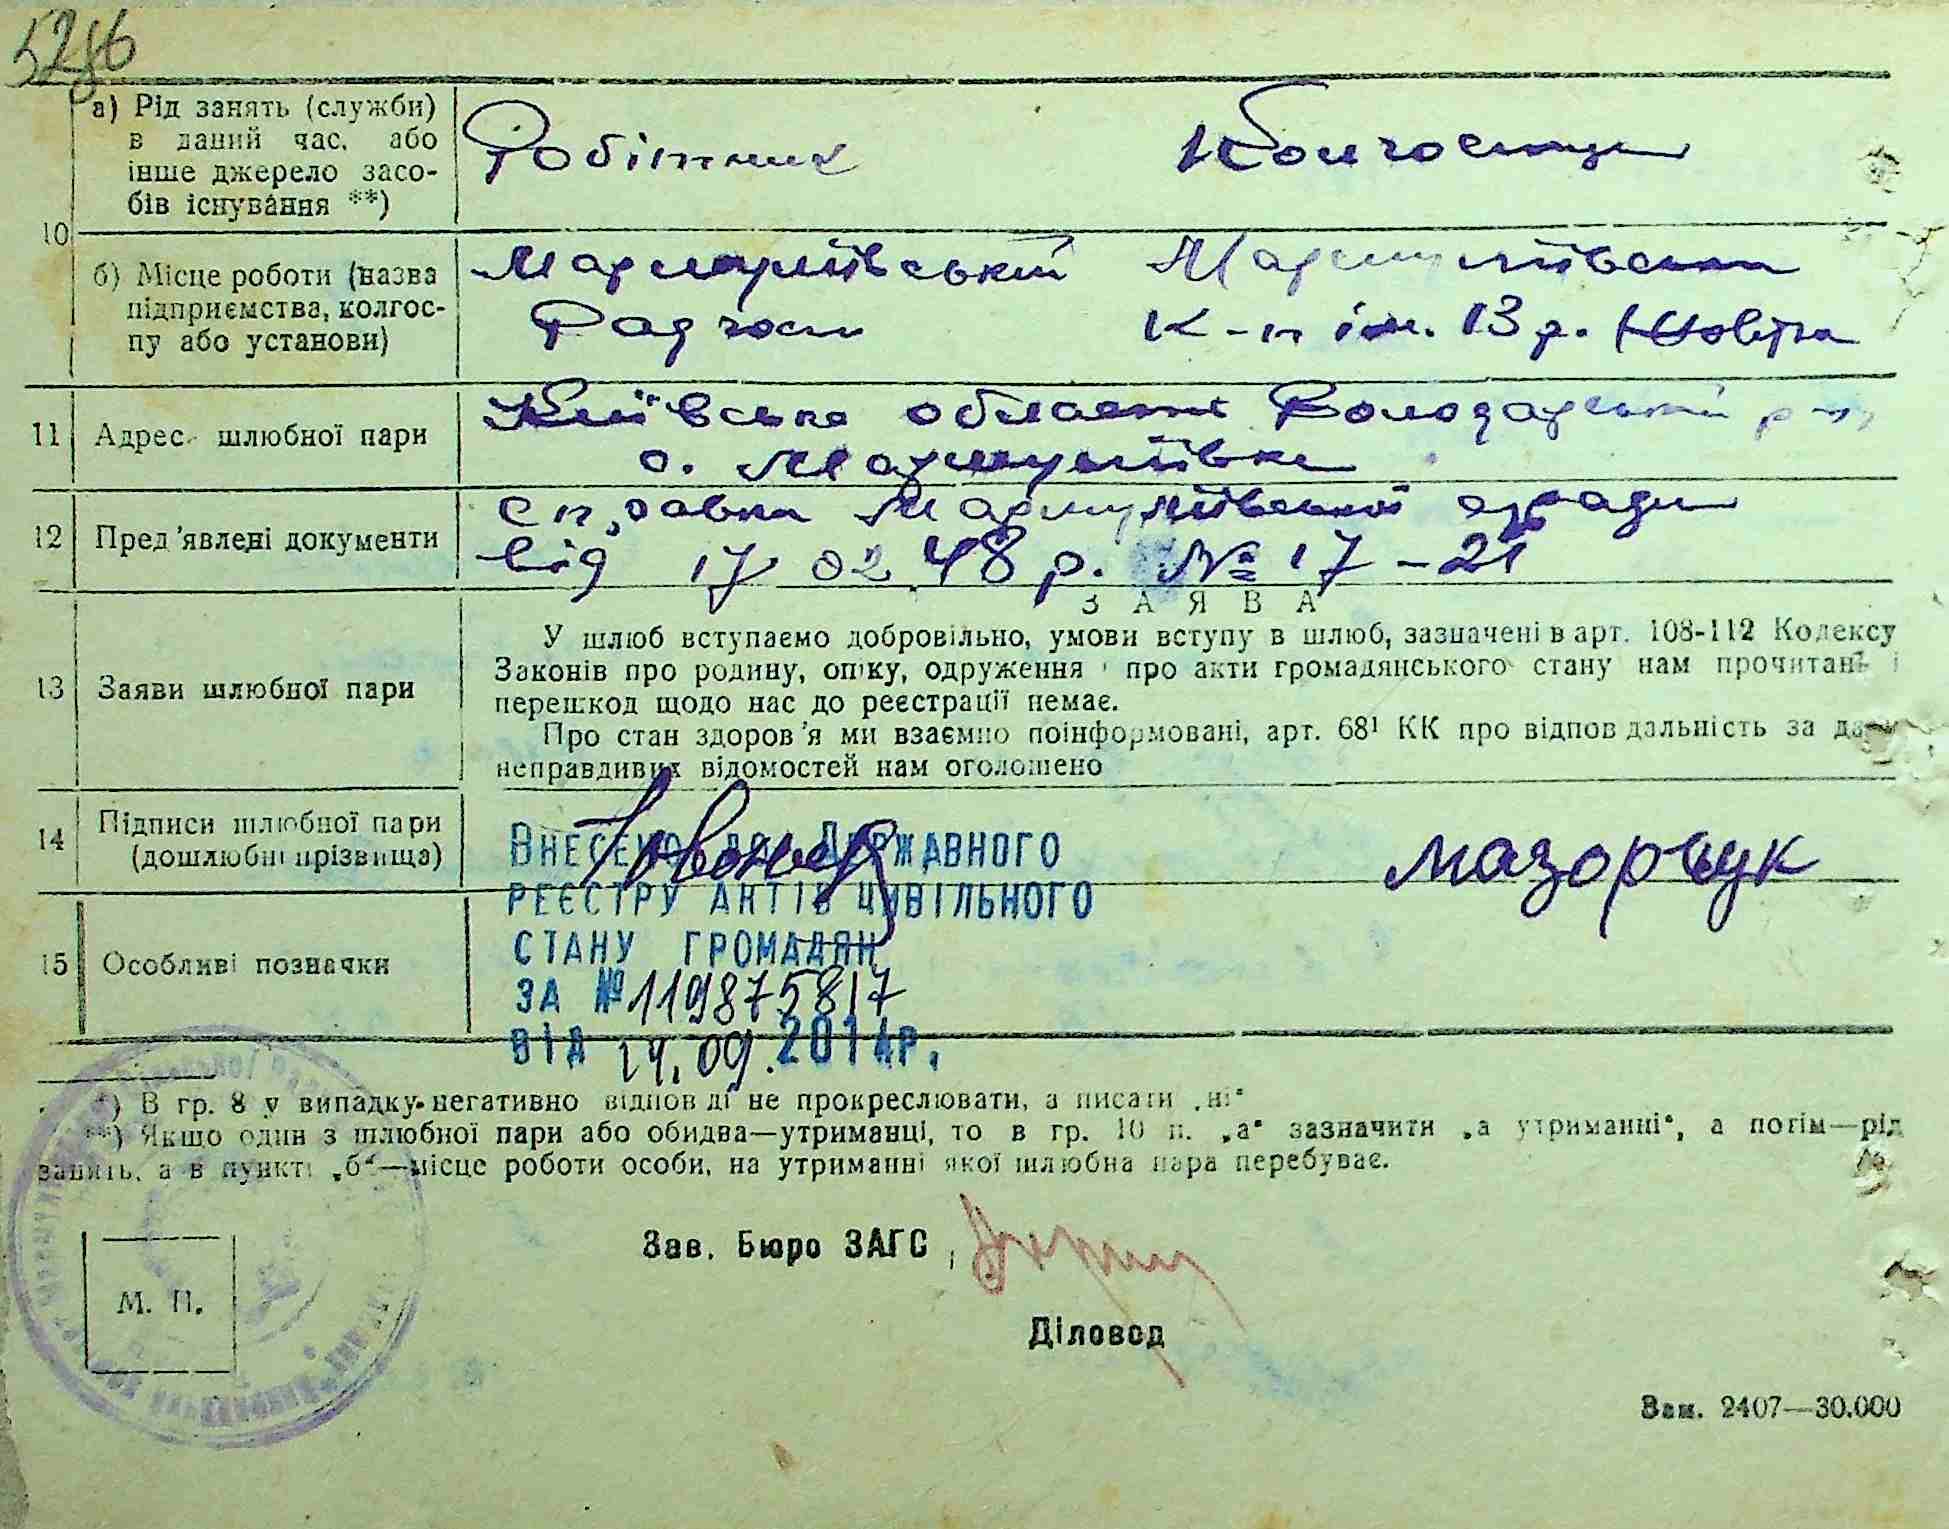 5286
а) Рід занять (служби) в даний час, або інше джерело засобів існування **)
Робітник
Колгоспниця
10
б) Місце роботи (назва підприємства, колгоспу або установи)
Мармуліївський Радгосп
Мармуліївський К-п ім. 13 р. Жовтня
11 Адрес шлюбної пари
Київська область Володарський р-н,
с. Мармуліївка
12 Пред'явлені документи
Справка Мармуліївської с/ради
від 17 02 48 р. № 17-21
ЗАЯВА
13 Заяви шлюбної пари
У шлюб вступаємо добровільно, умови вступу в шлюб, зазначені в арт. 108-112 Кодексу
Законів про родину, опіку, одруження і про акти громадянського стану нам прочитані і
перешкод щодо нас до реєстрації немає.
Про стан здоров'я ми взаємно поінформовані, арт. 68¹ КК про відповідальність за дачу
неправдивих відомостей нам оголошено
14 Підписи шлюбної пари
(дошлюбні прізвища)
мазорчук
Внесено до Державного
реєстру актів цивільного
стану громадян
за № 119875817
від 24.09.2014р.
15 Особливі позначки
*) В гр. 8 у випадку негативної відповіді не прокреслювати, а писати „ні“
**) Якщо один з шлюбної пари або обидва—утриманці, то в гр. 10 п. „а“ зазначити „а утриманні“, а потім—рід
занять, а в пункті „б“—місце роботи особи, на утриманні якої шлюбна пара перебуває.
Зав. Бюро ЗАГС
М. П.
Діловод
Зам. 2407—30.000